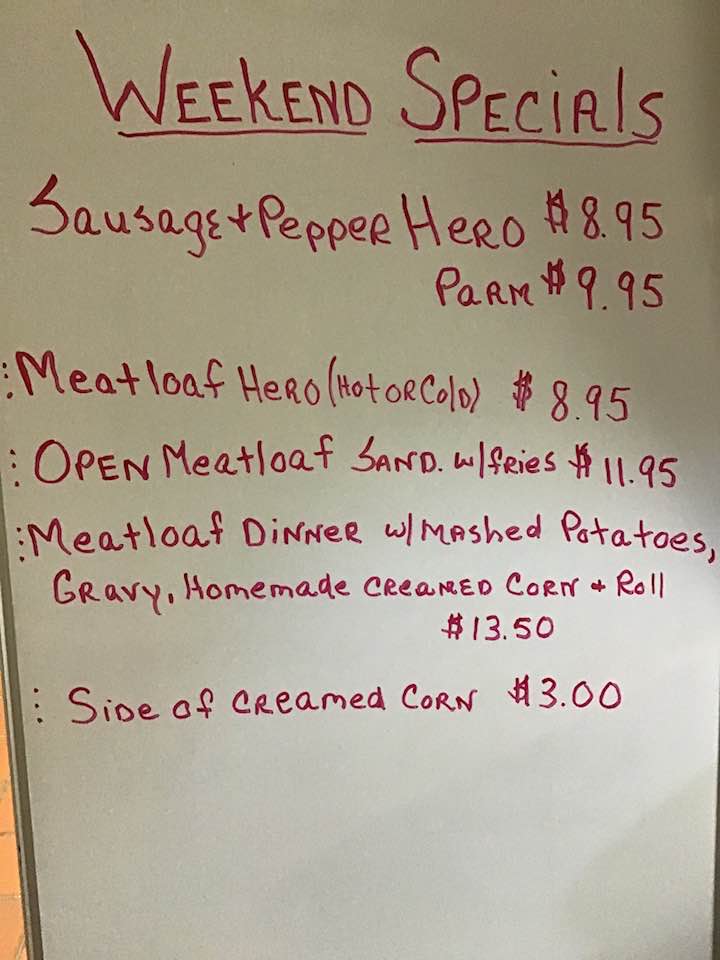 WEEKEND SPECIALS
Sausage + Pepper Hero $8.95
Parm $9.95
⋮Meatloaf Hero (Hot or Cold) $8.95
⋮OPEN Meatloaf SAND. w/fries $11.95
⋮Meatloaf DINNER w/MAshed Potatoes,
Gravy, Homemade CREAMED CORN + Roll
$13.50
⋮Side of CREamed CORN $3.00